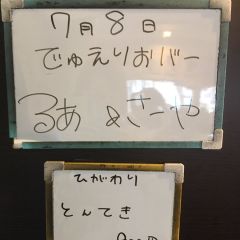 7月8日
でゅえりおバー
るあ &さーや
ひがわり
とんてき